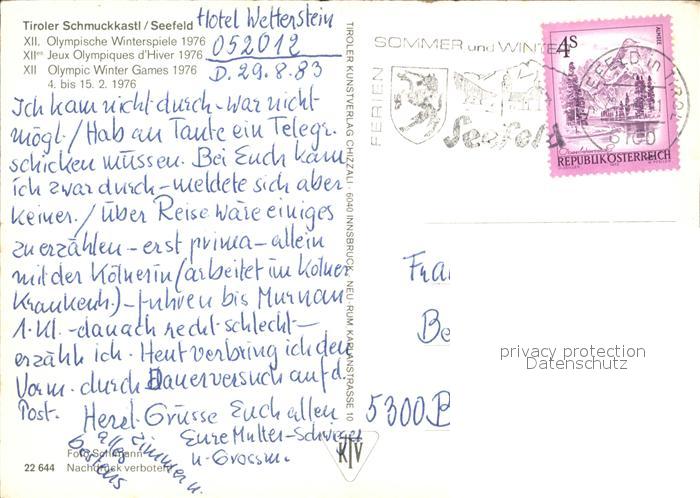 Tiroler Schmuckkastl / Seefeld
XII. Olympische Winterspiele 1976
XIIes Jeux Olympiques d'Hiver 1976
XII Olympic Winter Games 1976
4. bis 15. 2. 1976
Hotel Wetterstein
052012
D. 29.8.83
Ich kam nicht durch - war nicht
mögl. / Hab an Tante ein Telegr.
schicken müssen. Bei Euch kam
ich zwar durch - meldete sich aber
keiner. / Über Reise wäre einiges
zu erzählen - erst prima - allein
mit der Kölnerin (arbeitet im Kölner
Krankenh.) - fuhren bis Murnau
1. Kl. - danach recht schlecht -
erzähl ich. Heut verbring ich den
Vorm. durch Dauerversuch auf d.
Post. Herzl. Grüsse Euch allen
Eure Mutter - Schwieger
u. Grossm.
alles
Zimmer u.
Bestens
Foto
22 644 Nachdruck verboten
TIROLER KUNSTVERLAG CHIZZALI · 6040 INNSBRUCK · NEU-RUM KAPLANSTRASSE 10
KTV
SOMMER und WINTER
FERIEN
Seefeld
SEEFELD IN TIROL
6100
4S
REPUBLIK ÖSTERREICH
Be
5300 B
privacy protection
Datenschutz